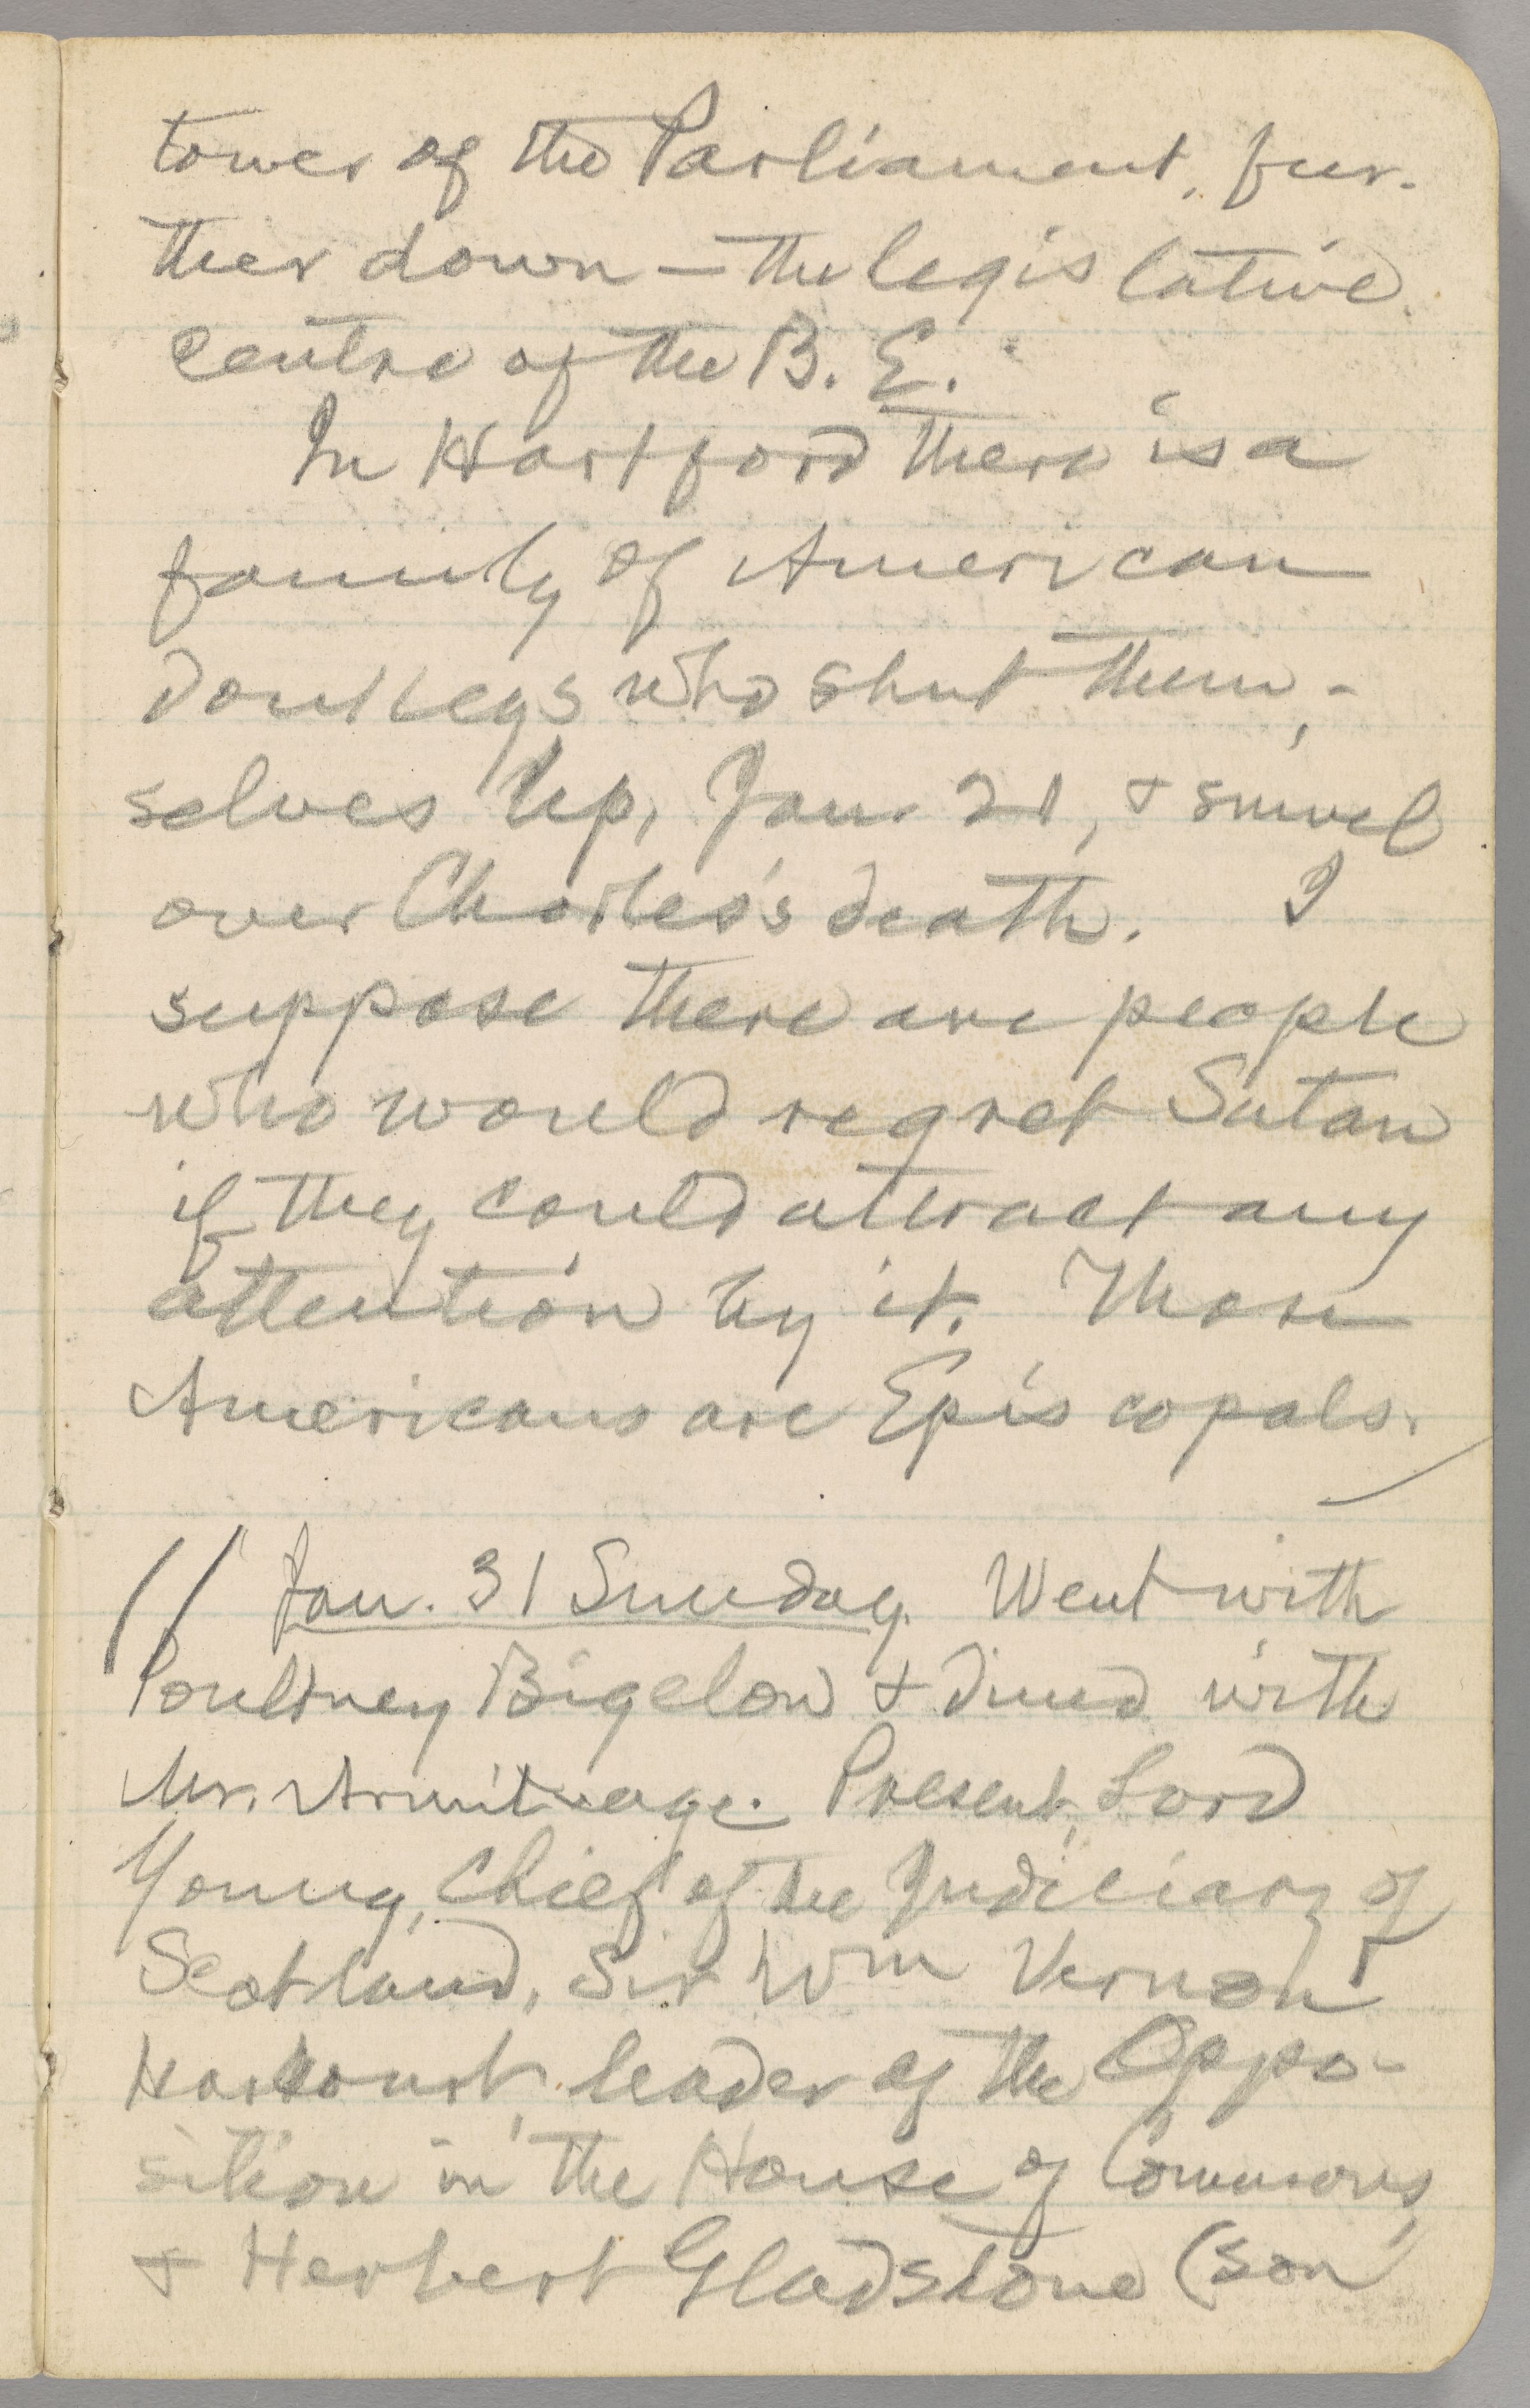 tower of the Parliament, fur-
ther down — the legislative
centre of the B. E.
In Hartford there is a
family of American
donkeys who shut them-
selves up, Jan. 21, & snivel
over Charles's death. I
suppose there are people
who would regret Satan
if they could attract any
attention by it. Those
Americans are Episcopals.
// Jan. 31 Sunday. Went with
Poultney Bigelow & dined with
Mr. Armitage. Present, Lord
Young, Chief of the Judiciary of
Scotland, Sir Wm Vernon
Harcourt, leader of the Oppo-
sition in the House of Commons,
& Herbert Gladstone (son